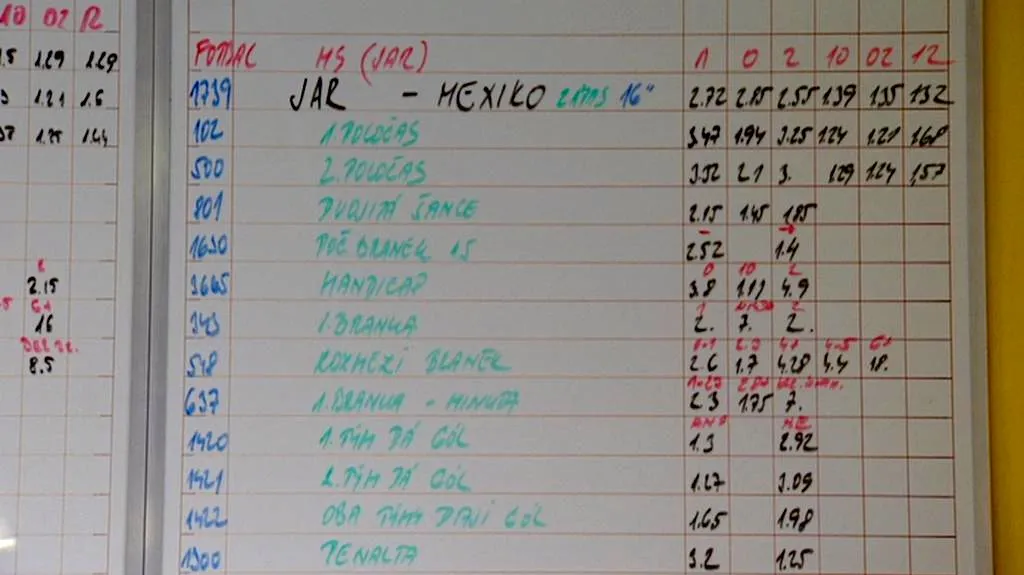 10 02 12
1.29 1.29
1.21 1.6
1.44
2.15
6+
16
8.5
FOTBAL MS (JAR) 1 0 2 10 02 12
1739 JAR - MEXIKO 16°° 2.72 2.85 2.55 1.39 1.35 1.32
102 1. POLOČAS 3.47 1.94 3.25 1.24 1.21 1.68
500 2. POLOČAS 3.52 2.1 3. 1.29 1.24 1.57
801 DVOJITÁ ŠANCE 2.15 1.45 1.85
- +
1630 POČ BRANEK 1.5 2.52 1.4
0 10 2
3665 HANDICAP 3.8 4.9
1 2
343 1. BRANKA 2. 7. 2.
0-1 2-3 4+ 4-5 6+
548 ROZMEZÍ BRANEK 2.6 1.7 4.28 4.4 18.
1-27
637 1. BRANKA - MINUTA 2.3 1.75 7.
ANO NE
1420 1. TÝM DÁ GÓL 1.3 2.92
1421 2. TÝM DÁ GÓL 1.27 3.09
1422 OBA TÝMY DAJÍ GÓL 1.65 1.98
1300 PENALTA 3.2 1.25